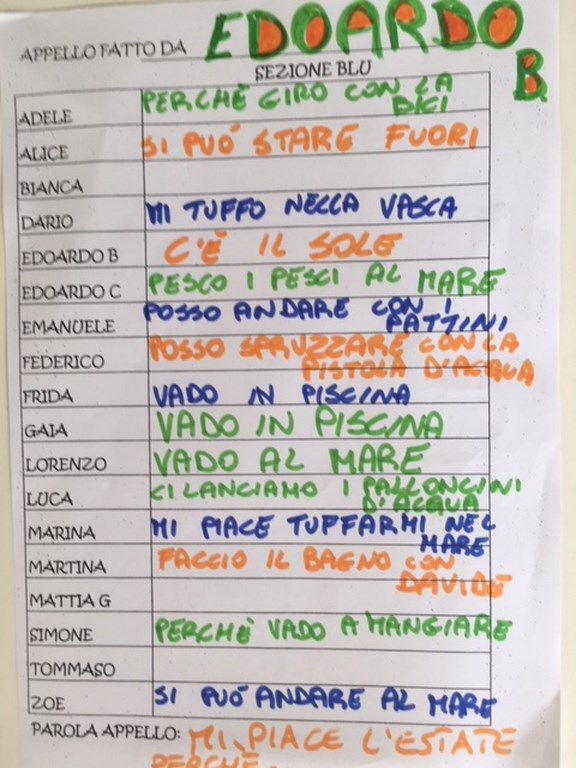 APPELLO FATTO DA EDOARDO B.
SEZIONE BLU
ADELE PERCHÈ GIRO CON LA
BICI
ALICE SI PUÓ STARE FUORI
BIANCA
DARIO MI TUFFO NELLA VASCA
EDOARDO B C'È IL SOLE
EDOARDO C PESCO I PESCI AL MARE
EMANUELE POSSO ANDARE CON I
PATTINI
FEDERICO POSSO SPRUZZARE CON LA
PISTOLA D'ACQUA
FRIDA VADO IN PISCINA
GAIA VADO IN PISCINA
LORENZO VADO AL MARE
LUCA CI LANCIAMO I PALLONCINI
D'ACQUA
MARINA MI PIACE TUFFARMI NEL
MARE
MARTINA FACCIO IL BAGNO CON
DAVIDE
MATTIA G
SIMONE PERCHÈ VADO A MANGIARE
TOMMASO
ZOE SI PUÓ ANDARE AL MARE
PAROLA APPELLO: MI PIACE L'ESTATE
PERCHÈ